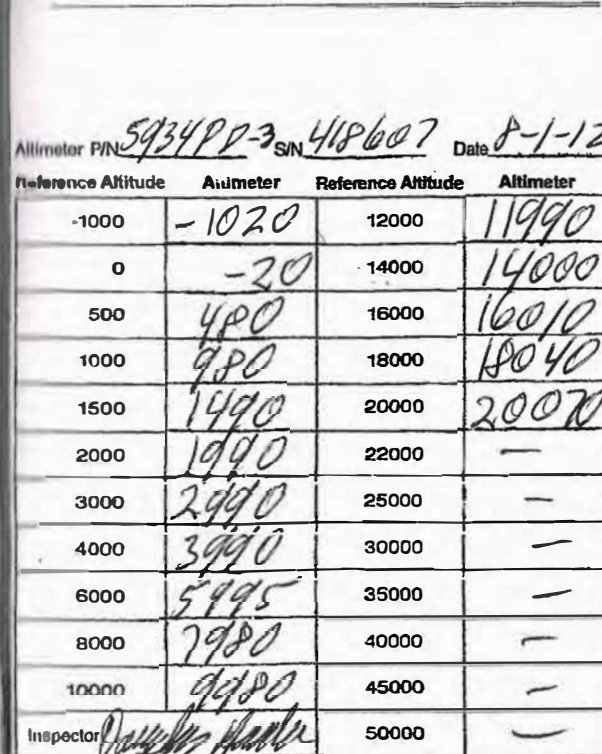 Altimeter P/N 5934PD-3 S/N 418607 Date 8-1-12
Reference Altitude Altimeter Reference Altitude Altimeter
-1000 -1020 12000 11990
0 -20 14000 14000
500 480 16000 16010
1000 980 18000 18040
1500 1490 20000 20070
2000 1990 22000 —
3000 2990 25000 —
4000 3990 30000 —
6000 5995 35000 —
8000 7980 40000 —
10000 9980 45000 —
Inspector 50000 —